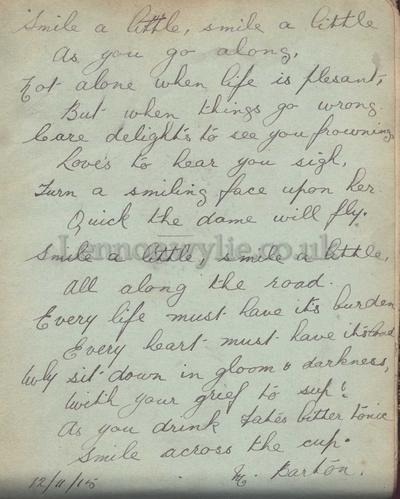 Smile a little, smile a little
As you go along,
Not alone when life is plesant,
But when things go wrong.
Care delights to see you frowning,
Loves to hear you sigh,
Turn a smiling face upon her
Quick the dame will fly.
Lennonwylie.co.uk
Smile a little, smile a little,
All along the road.
Every life must have its burden
Every heart must have its load
Why sit down in gloom & darkness,
With your grief to sup?
As you drink Fates bitter tonic
Smile across the cup.
12/11/15 M. Barton.